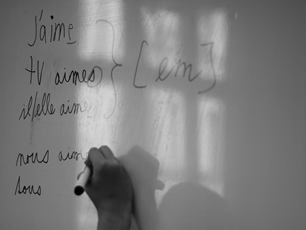 j'aime
tu aimes
il/elle aime
[em]
nous aim